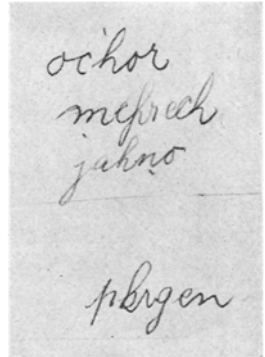 ochor
mefirech
jahno
pkrgen